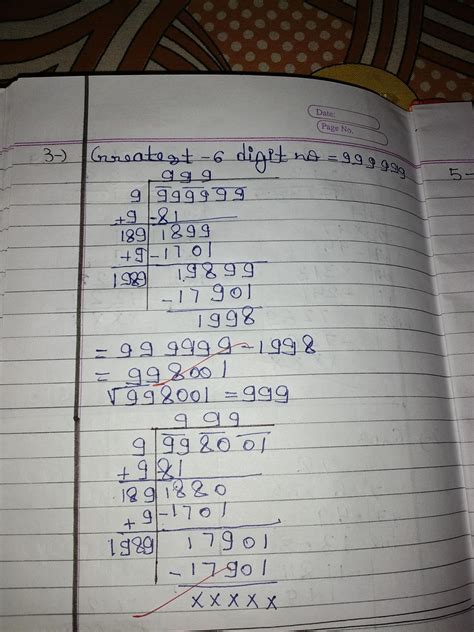 Date:
Page No.
3-) Greatest - 6 digit no = 999999
5-
999
9 999999
+9 -81
189 1899
+9 -1701
1989 19899
-17901
1998
= 999999 - 1998
= 998001
√998001 = 999
999
9 998001
+9 81
189 1880
+9 -1701
1989 17901
-17901
xxxxx